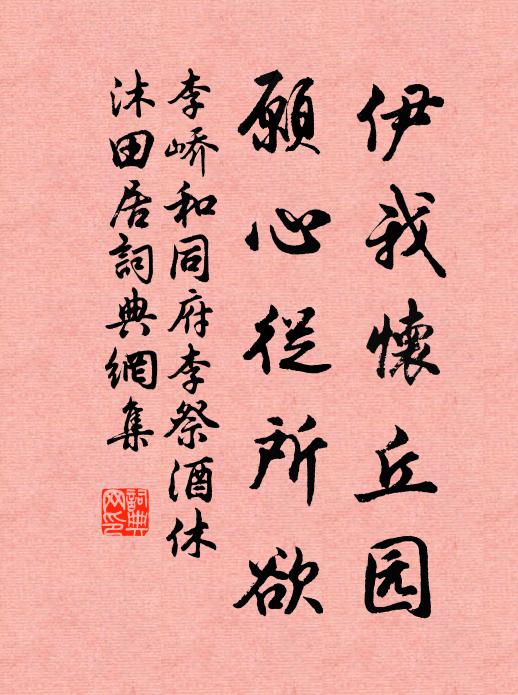 伊我懷丘园
願心從所欲
李嶠和同府李祭酒休
沐田居詞典網集
詞典網印